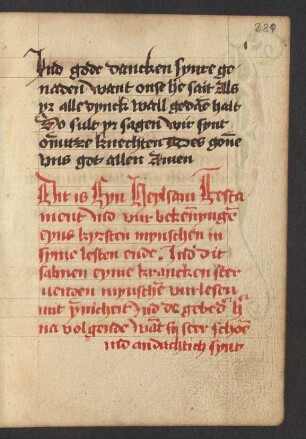 289
Ind gode dancken synre ge
naden want onse he sait Als
yr alle dynck wail gedaē hait
Zo sult yr sagen wir synt
onutze knechten Des gōne
vns got allen Amen
Dit is Eyn Heylsam Testa
ment Ind vur bekennynge
eyns kyrsten mynschen in
syme lesten ende. Ind dit
sal men eyme krancken ster
uenden mynschē vurlesen
mit ynicheit Ind de gebed h
na volgende wāt sy seer schoē
ind andachtich synt